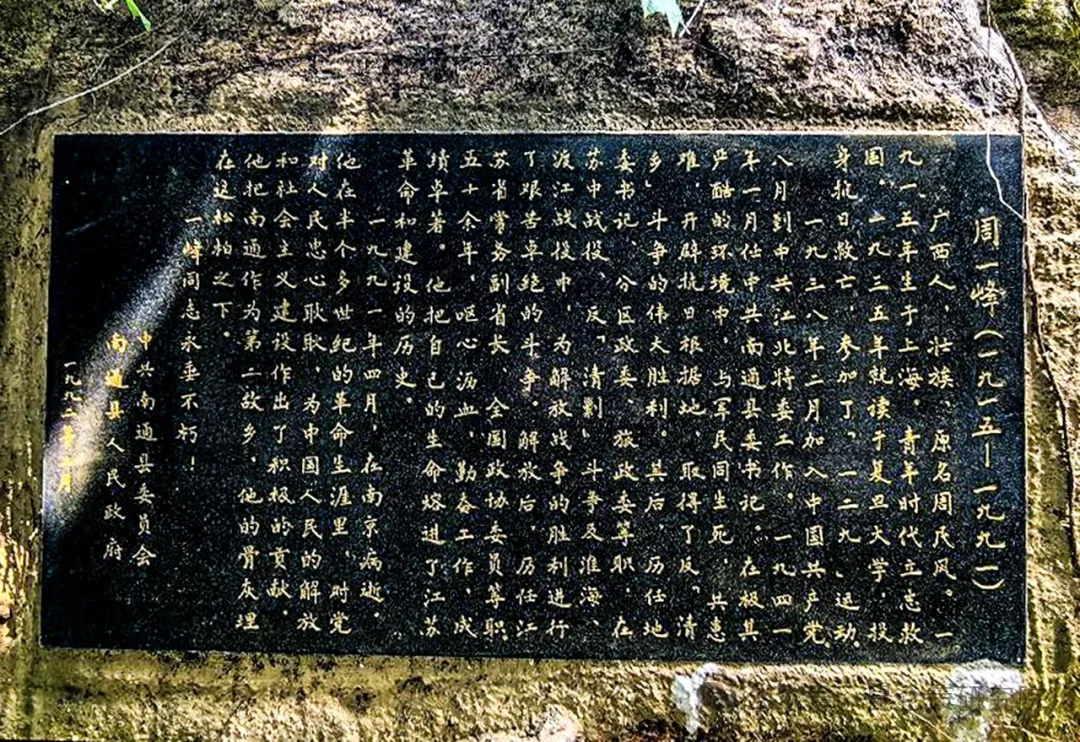 周一峰(一九一五—一九九一)
广西人，壮族，原名周民风。一
九一五年生于上海。青年时代立志救
国。一九三五年就读于复旦大学，投
身抗日救亡，参加了“一二九”运动。
一九三八年二月加入中国共产党。
八月到中共江北特委工作。一九四一
年一月任中共南通县委书记。在极其
严酷的环境中，与军民同生死，共患
难，开辟抗日根据地，取得了反“清
乡”斗争的伟大胜利。其后，历任地
委书记、分区政委、旅政委等职，在
苏中战役、反“清剿”斗争及淮海、
渡江战役中，为解放战争的胜利进行
了艰苦卓绝的斗争。解放后，历任江
苏省常务副省长、全国政协委员等职
五十余年，呕心沥血，勤奋工作，成
绩卓著。他把自己的生命熔进了江苏
革命和建设的历史。
一九九一年四月，在南京病逝。
他在半个多世纪的革命生涯里，对党
对人民忠心耿耿，为中国人民的解放
和社会主义建设作出了积极的贡献。
他把南通作为第二故乡，他的骨灰埋
在这松柏之下。
一峰同志永垂不朽！
中共南通县委员会
南通县人民政府
一九九二年 月